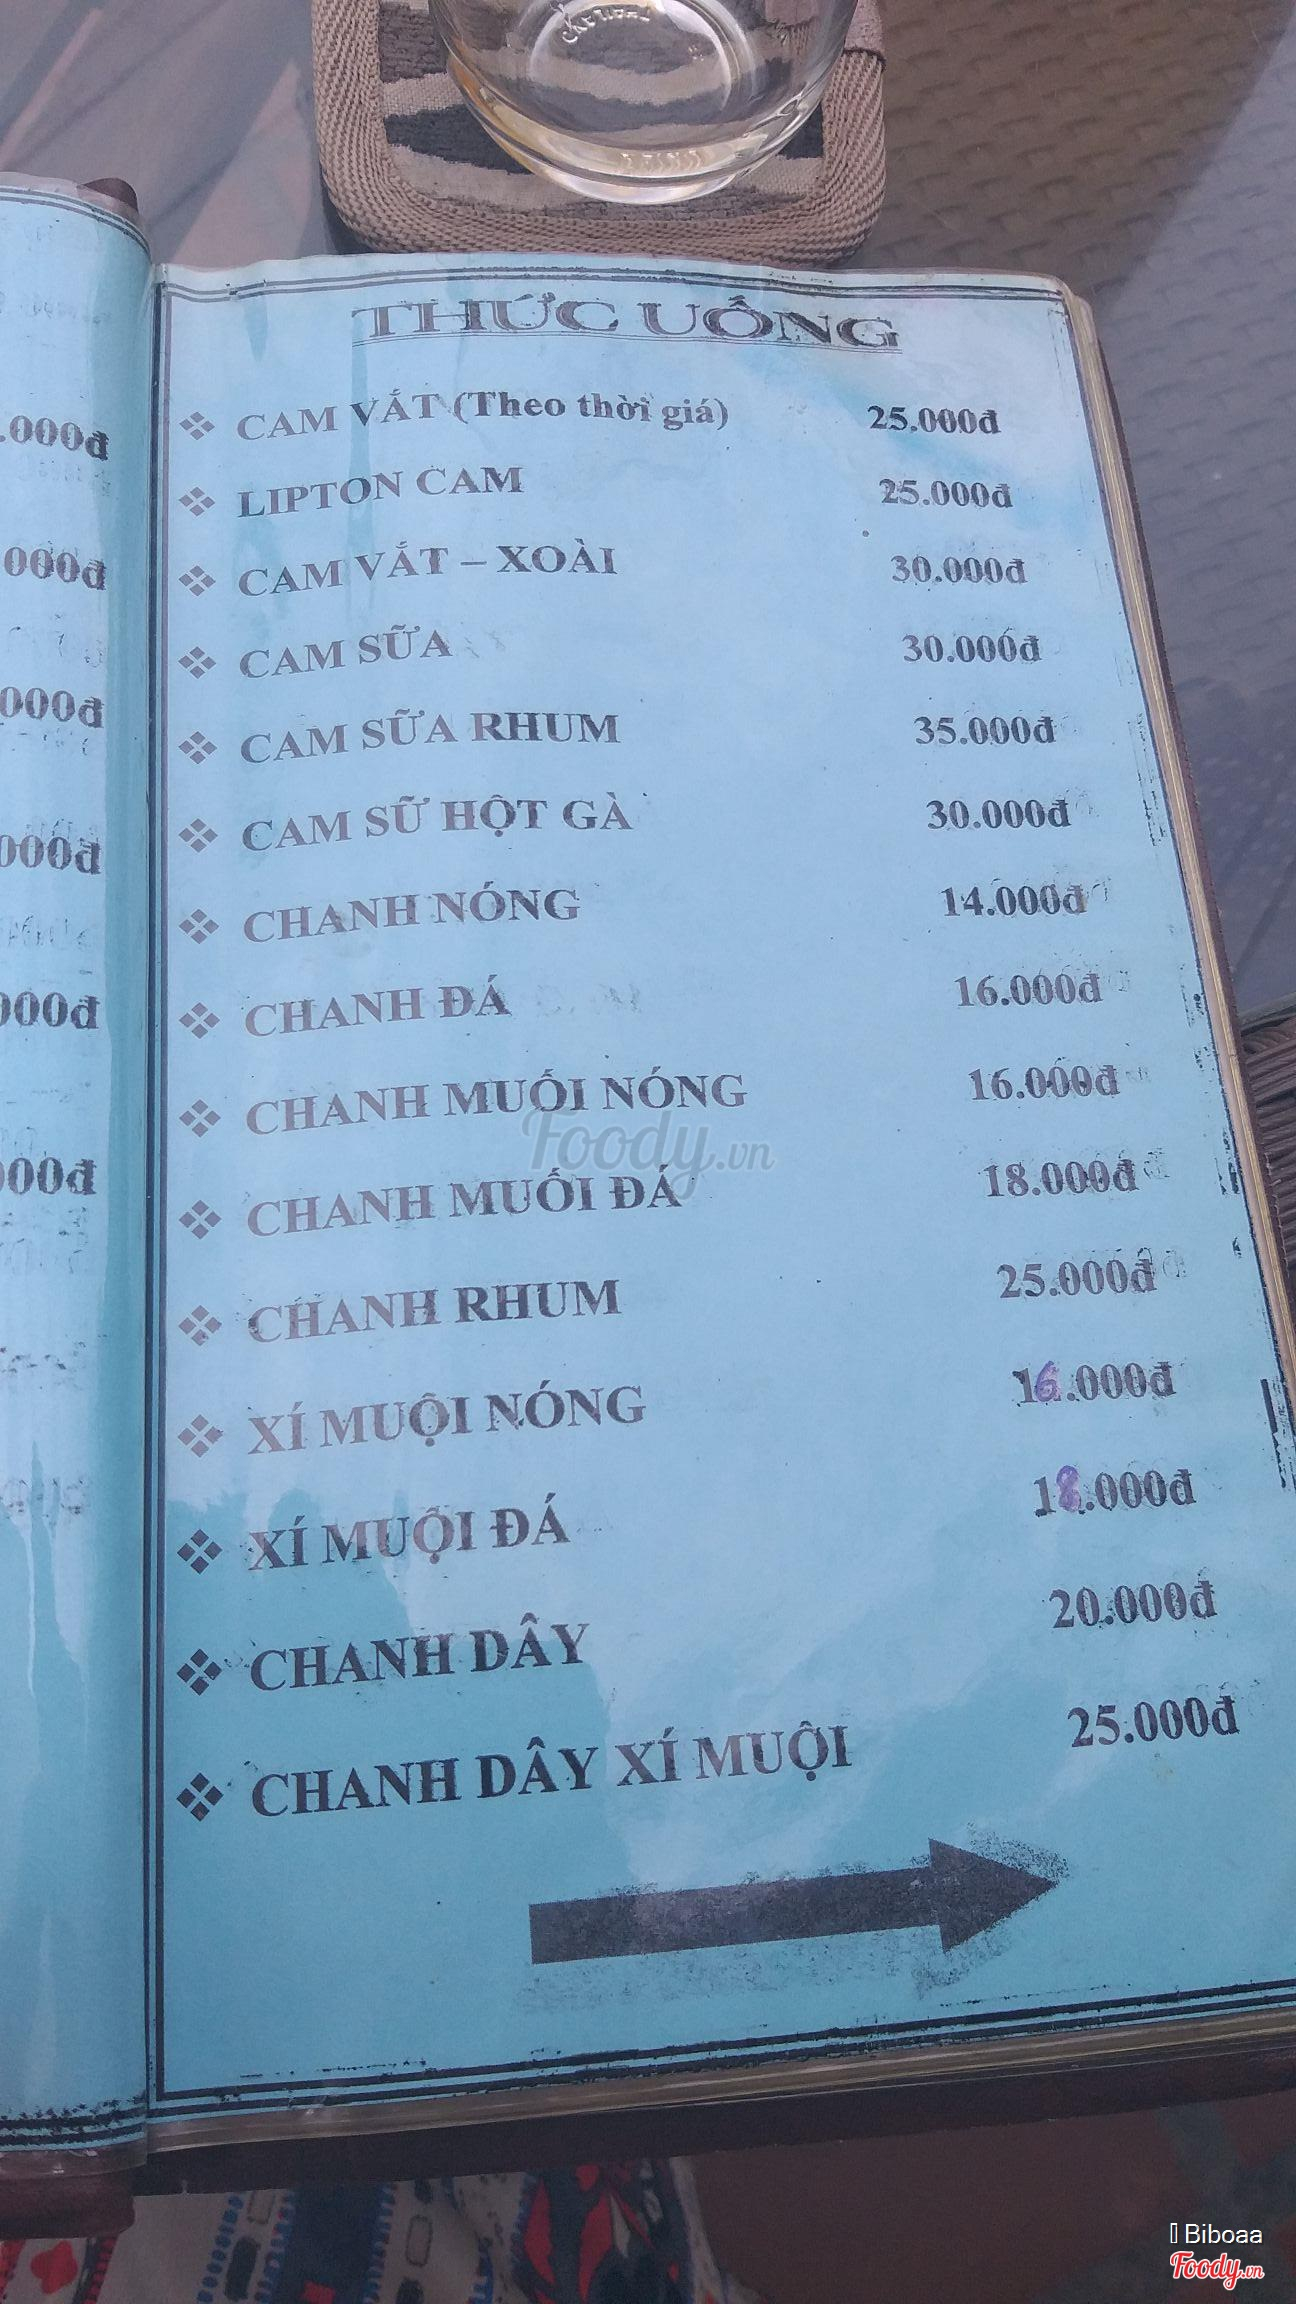 THỨC UỐNG
❖ CAM VẮT (Theo thời giá) 25.000đ
❖ LIPTON CAM 25.000đ
❖ CAM VẮT – XOÀI 30.000đ
❖ CAM SỮA 30.000đ
❖ CAM SỮA RHUM 35.000đ
❖ CAM SỮ HỘT GÀ 30.000đ
❖ CHANH NÓNG 14.000đ
❖ CHANH ĐÁ 16.000đ
❖ CHANH MUỐI NÓNG 16.000đ
❖ CHANH MUỐI ĐÁ 18.000đ
❖ CHANH RHUM 25.000đ
❖ XÍ MUỘI NÓNG 16.000đ
❖ XÍ MUỘI ĐÁ 18.000đ
❖ CHANH DÂY 20.000đ
❖ CHANH DÂY XÍ MUỘI 25.000đ
.000đ
000đ
000đ
000đ
000đ
000đ
Foody.vn
Biboaa
Foody.vn